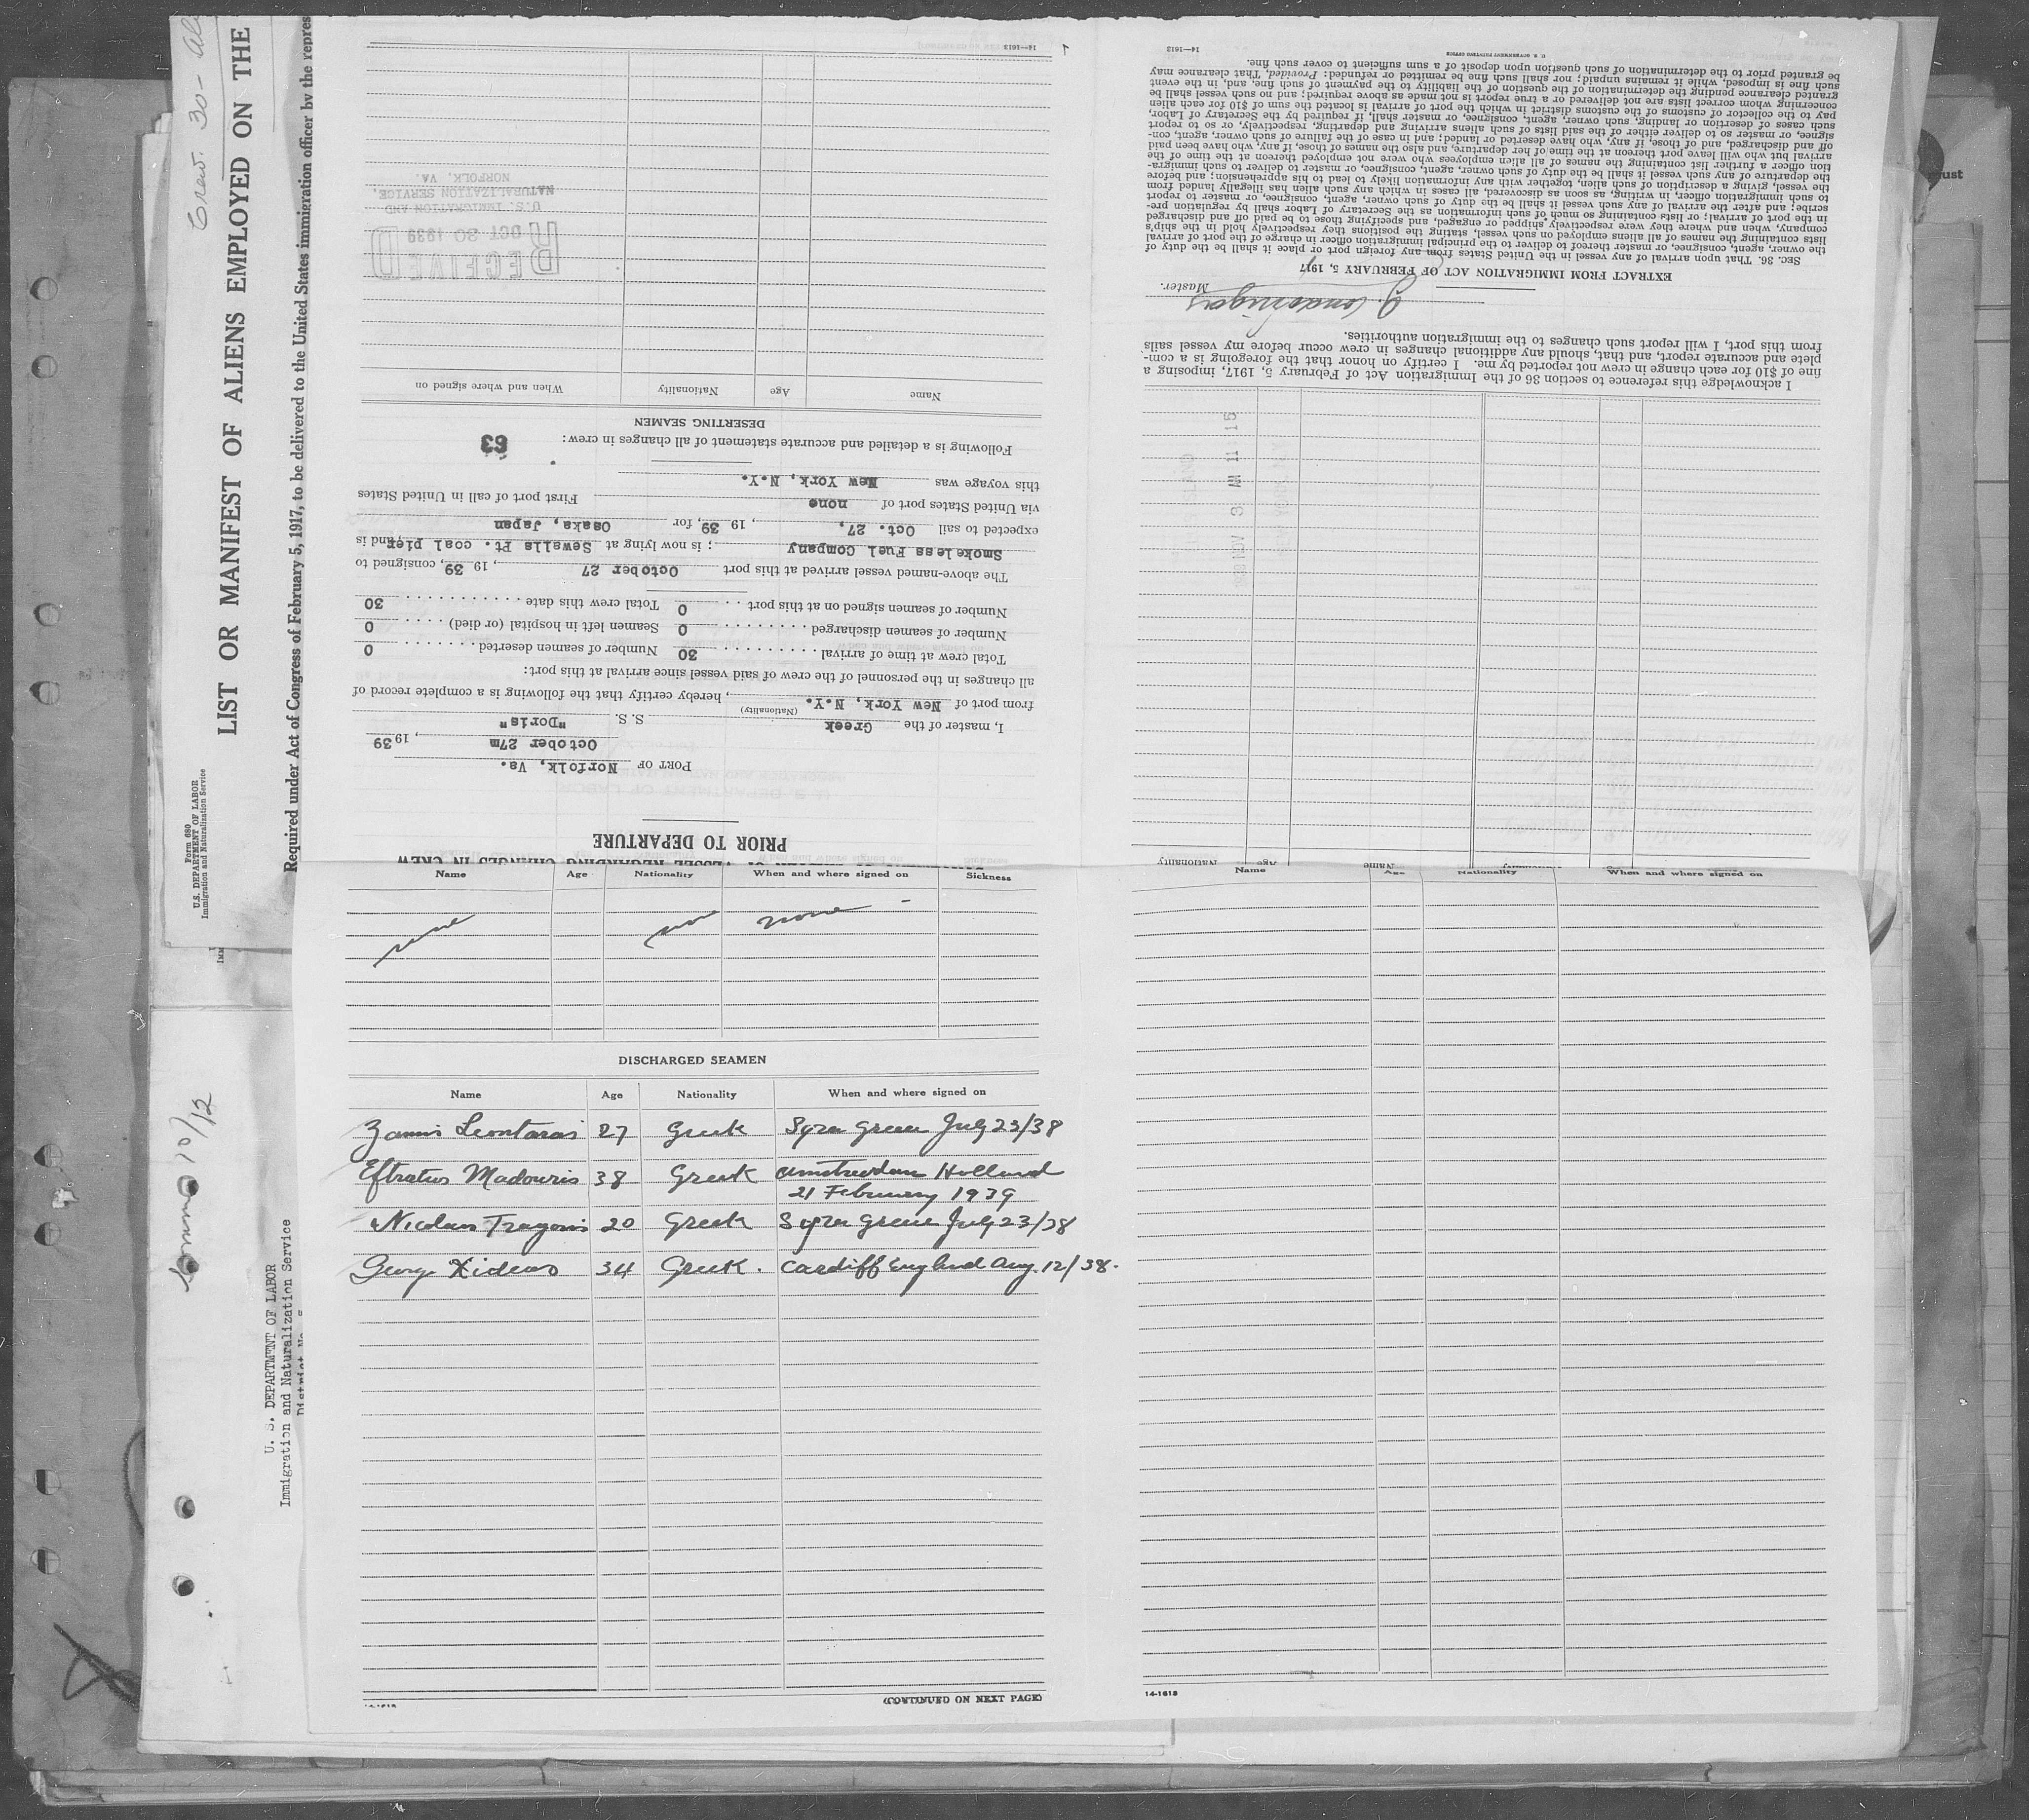 Crew. 30-
LIST OR MANIFEST OF ALIENS EMPLOYED ON THE
Required under Act of Congress of February 5, 1917, to be delivered to the United States immigration officer by the repres
Form 680
U.S. DEPARTMENT OF LABOR
Immigration and Naturalization Service
10/12
U. S. DEPARTMENT OF LABOR
Immigration and Naturalization Service
PRIOR TO DEPARTURE
PORT OF Norfolk, Va.
October 27m, 1939
I, master of the Greek S. S. "Doris"
(Nationality)
from port of New York, N.Y., hereby certify that the following is a complete record of
all changes in the personnel of the crew of said vessel since arrival at this port:
Total crew at time of arrival 30 Number of seamen deserted 0
Number of seamen discharged 0 Seamen left in hospital (or died) 0
Number of seamen signed on at this port 0 Total crew this date 30
The above-named vessel arrived at this port October 27, 1939, consigned to
Smokeless Fuel Company; is now lying at Sewalls Pt. coal pier, and is
expected to sail Oct. 27, 1939, for Osaka, Japan
via United States port of none First port of call in United States
this voyage was New York, N.Y.
63
Following is a detailed and accurate statement of all changes in crew:
DESERTING SEAMEN
Name Age Nationality When and where signed on
RECEIVED
OCT 30 1939
U.S. IMMIGRATION AND
NATURALIZATION SERVICE,
NORFOLK, VA.
14—1613
Name Age Nationality
I acknowledge this reference to section 36 of the Immigration Act of February 5, 1917, imposing a
fine of $10 for each change in crew not reported by me. I certify on honor that the foregoing is a com-
plete and accurate report, and that, should any additional changes in crew occur before my vessel sails
from this port, I will report such changes to the immigration authorities.
Master.
EXTRACT FROM IMMIGRATION ACT OF FEBRUARY 5, 1917
SEC. 36. That upon arrival of any vessel in the United States from any foreign port or place it shall be the duty of
the owner, agent, consignee, or master thereof to deliver to the principal immigration officer in charge of the port of arrival
lists containing the names of all aliens employed on such vessel, stating the positions they respectively hold in the ship's
company, when and where they were respectively shipped or engaged, and specifying those to be paid off and discharged
in the port of arrival; or lists containing so much of such information as the Secretary of Labor shall by regulation pre-
scribe; and after the arrival of any such vessel it shall be the duty of such owner, agent, consignee, or master to report
to such immigration officer, in writing, as soon as discovered, all cases in which any such alien has illegally landed from
the vessel, giving a description of such alien, together with any information likely to lead to his apprehension; and before
the departure of any such vessel it shall be the duty of such owner, agent, consignee, or master to deliver to such immigra-
tion officer a further list containing the names of all alien employees who were not employed thereon at the time of the
arrival but who will leave port thereon at the time of her departure, and also the names of those, if any, who have been paid
off and discharged, and of those, if any, who have deserted or landed; and in case of the failure of such owner, agent, con-
signee, or master so to deliver either of the said lists of such aliens arriving and departing, respectively, or so to report
such cases of desertion or landing, such owner, agent, consignee, or master shall, if required by the Secretary of Labor,
pay to the collector of customs of the customs district in which the port of arrival is located the sum of $10 for each alien
concerning whom correct lists are not delivered or a true report is not made as above required; and no such vessel shall be
granted clearance pending the determination of the question of the liability to the payment of such fine, and, in the event
such fine is imposed, while it remains unpaid; nor shall such fine be remitted or refunded: Provided, That clearance may
be granted prior to the determination of such question upon deposit of a sum sufficient to cover such fine.
U. S. GOVERNMENT PRINTING OFFICE
14—1613
Name Age Nationality When and where signed on Sickness
none none none -
DISCHARGED SEAMEN
Name Age Nationality When and where signed on
Leontaras 27 Greek Syra Greece July 23/38
Madouris 38 Greek Amsterdam Holland
21 February 1939
20 Greek Syra Greece July 23/38
George Xideas 34 Greek. Cardiff England Aug. 12/38.
(CONTINUED ON NEXT PAGE)
Name Age Nationality When and where signed on
14-1613